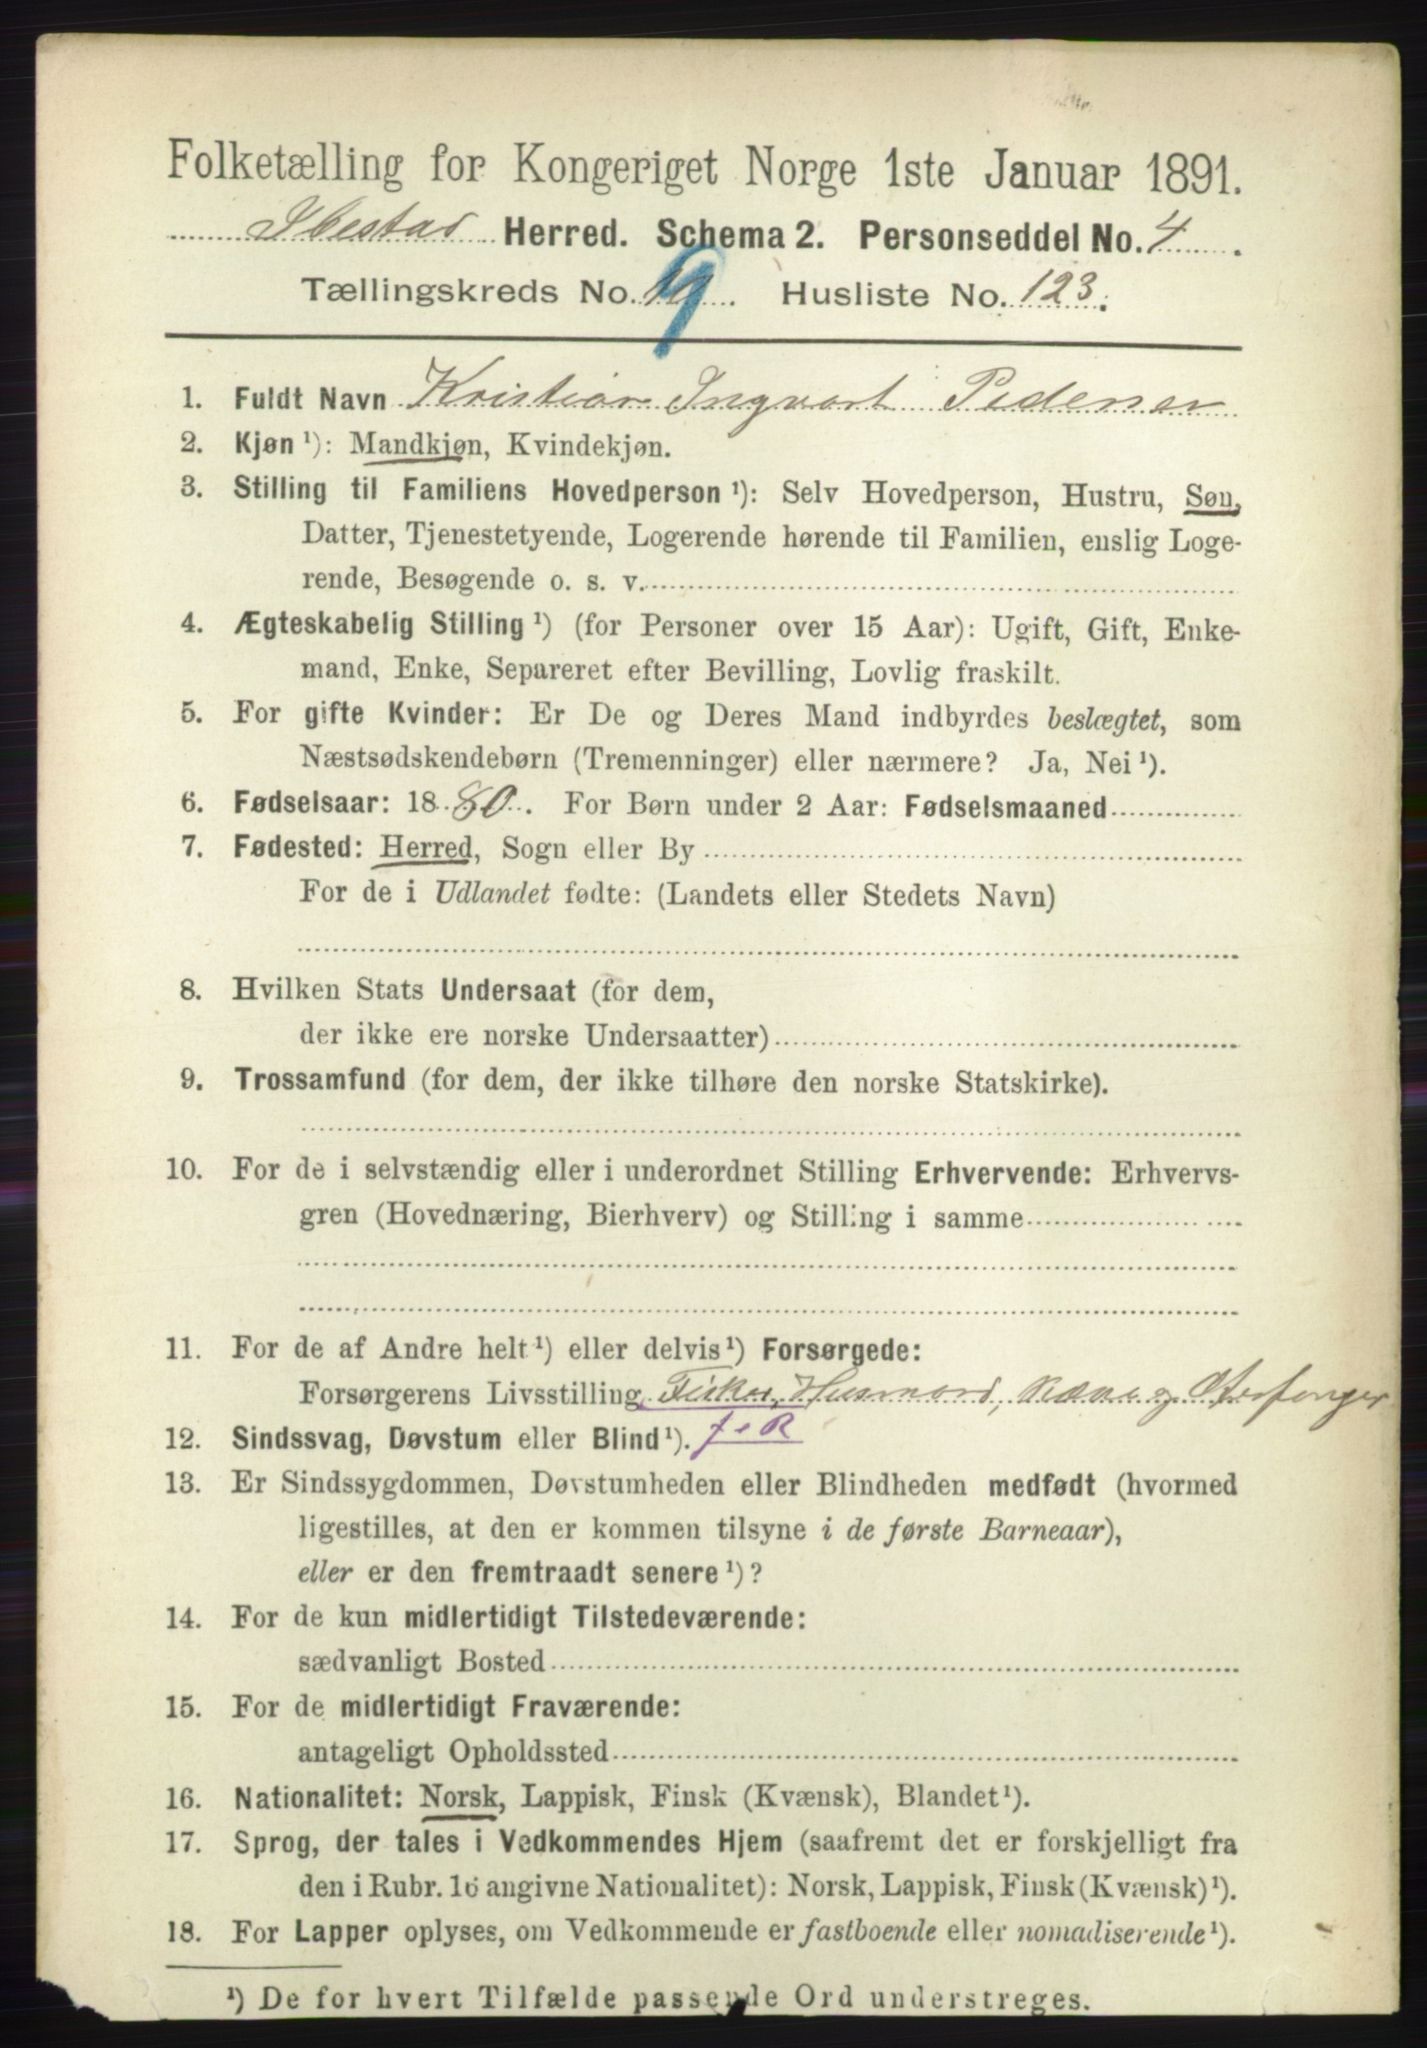 Folketælling for Kongeriget Norge 1ste Januar 1891.
Ibestad Herred. Schema 2. Personseddel No. 4.
Tællingskreds No. 9. Husliste No. 123.
1. Fuldt Navn Kristian Ingvart Pedersen
2. Kjøn ¹): Mandkjøn, Kvindekjøn.
3. Stilling til Familiens Hovedperson ¹): Selv Hovedperson, Hustru, Søn,
Datter, Tjenestetyende, Logerende hørende til Familien, enslig Loge-
rende, Besøgende o. s. v.
4. Ægteskabelig Stilling ¹) (for Personer over 15 Aar): Ugift, Gift, Enke-
mand, Enke, Separeret efter Bevilling, Lovlig fraskilt.
5. For gifte Kvinder: Er De og Deres Mand indbyrdes beslægtet, som
Næstsødskendebørn (Tremenninger) eller nærmere? Ja, Nei ¹).
6. Fødselsaar: 1880. For Børn under 2 Aar: Fødselsmaaned
7. Fødested: Herred, Sogn eller By
For de i Udlandet fødte: (Landets eller Stedets Navn)
8. Hvilken Stats Undersaat (for dem,
der ikke ere norske Undersaatter)
9. Trossamfund (for dem, der ikke tilhøre den norske Statskirke).
10. For de i selvstændig eller i underordnet Stilling Erhvervende: Erhvervs-
gren (Hovednæring, Bierhverv) og Stilling i samme
11. For de af Andre helt ¹) eller delvis ¹) Forsørgede:
Forsørgerens Livsstilling Fisker, Husmand,
12. Sindssvag, Døvstum eller Blind ¹).
13. Er Sindssygdommen, Døvstumheden eller Blindheden medfødt (hvormed
ligestilles, at den er kommen tilsyne i de første Barneaar),
eller er den fremtraadt senere ¹)?
14. For de kun midlertidigt Tilstedeværende:
sædvanligt Bosted
15. For de midlertidigt Fraværende:
antageligt Opholdssted
16. Nationalitet: Norsk, Lappisk, Finsk (Kvænsk), Blandet ¹).
17. Sprog, der tales i Vedkommendes Hjem (saafremt det er forskjelligt fra
den i Rubr. 16 angivne Nationalitet): Norsk, Lappisk, Finsk (Kvænsk) ¹).
18. For Lapper oplyses, om Vedkommende er fastboende eller nomadiserende ¹).
¹) De for hvert Tilfælde passende Ord understreges.